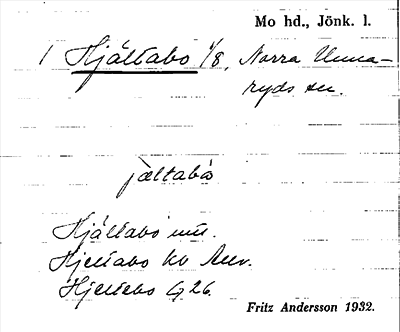 Mo hd., Jönk. l.
1 Hjältabo 1/8, Norra Unna-
ryds sn.
jæltabo
Hjältabo uttl.
Hjeltabo kb Anv.
Hjeltebo G 26.
Fritz Andersson 1932.